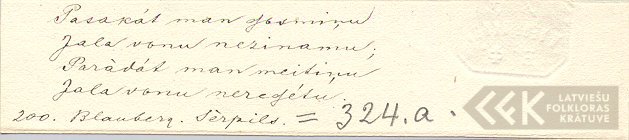 Pasakát man dósmiņu
Jala vonu nežinamu;
Parādát man meitiņu
Jala vonu neregétu.
200. Blauberg. Sērpils. = 324.a.
LATVIEŠU
FOLKLORAS
KRĀTUVE